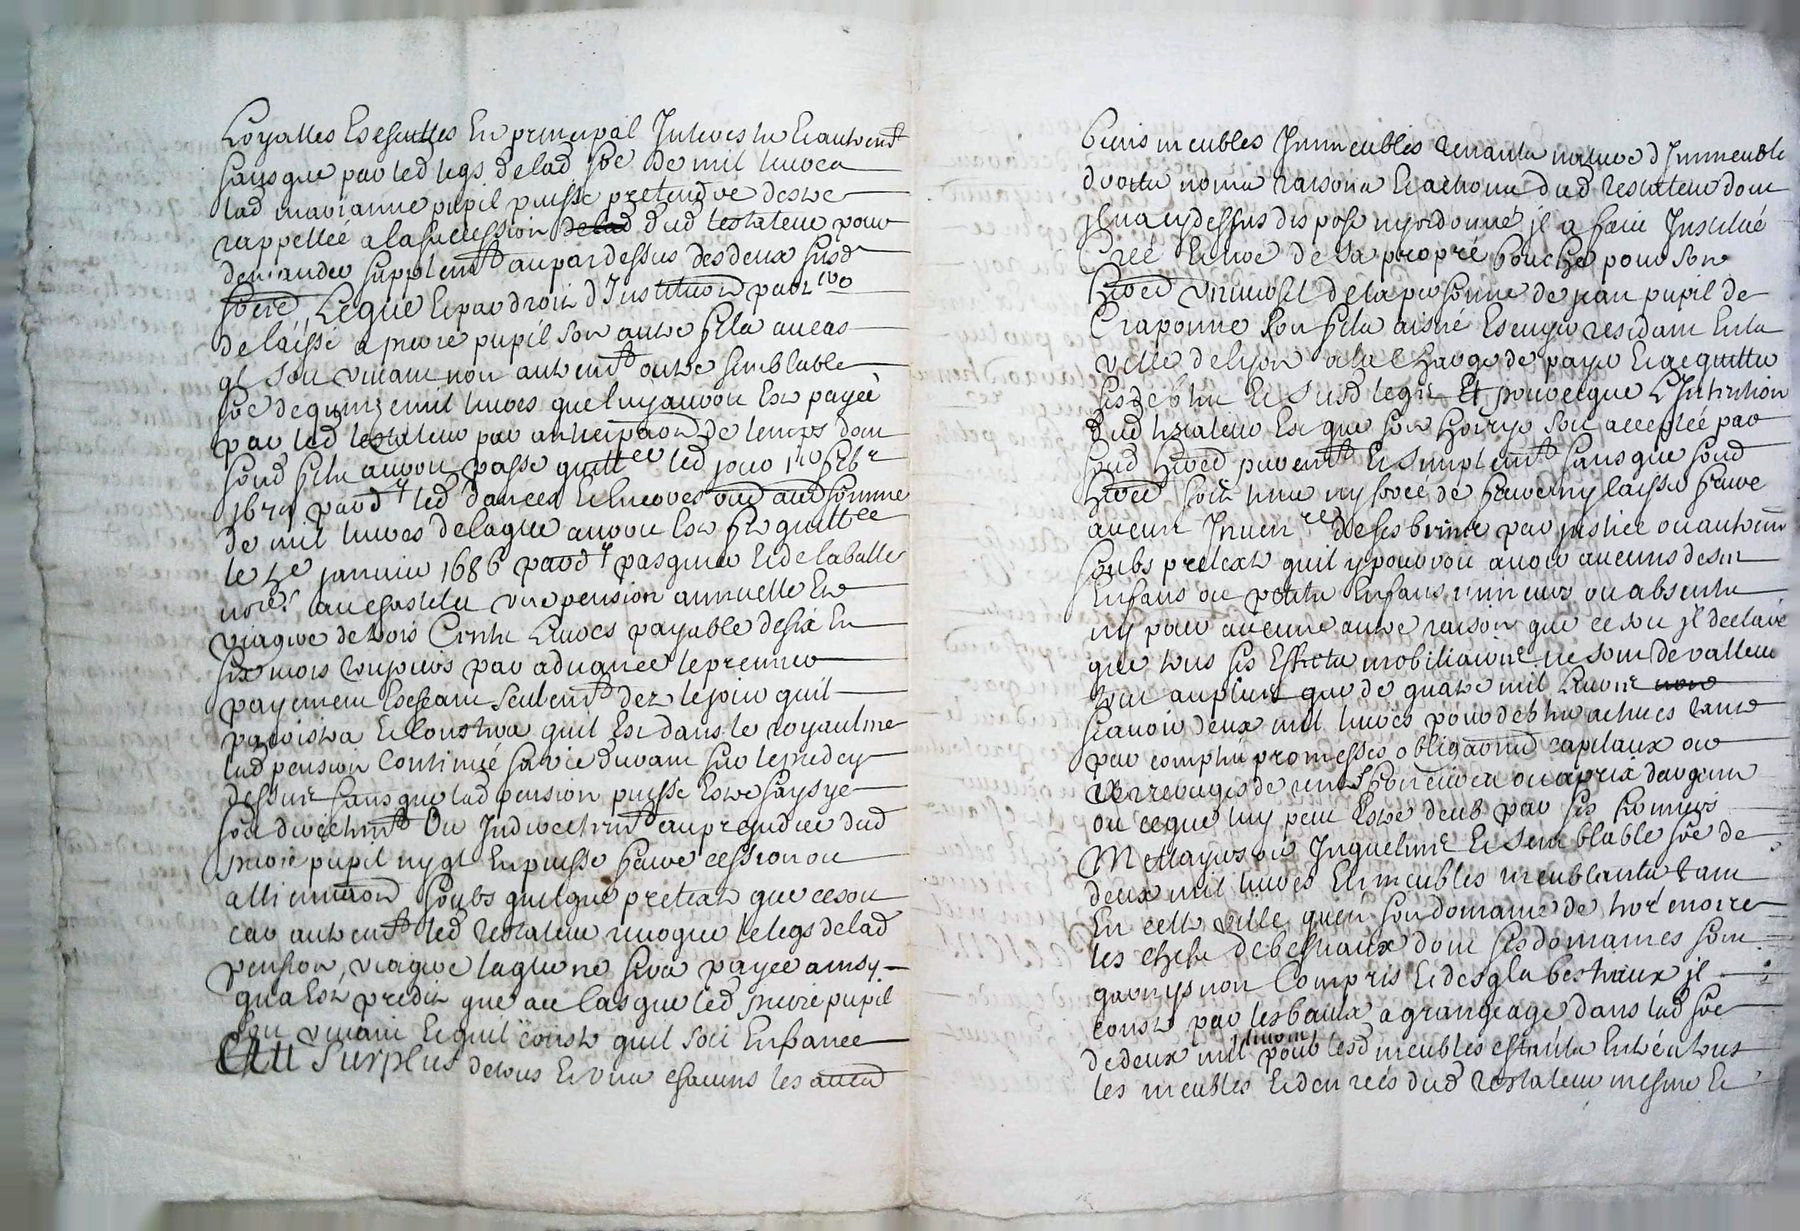 Loyalles Esgalles En principal Interests Et autremt
sans que par led legs de lad soe de mil livres
lad marianne pupil puisse pretendre destre
rappellée a la succession delad dud testateur pour
demander supplemt au par dessus des deux susd
Legue Et par droit d'Institution
delaissé a pierre pupil son autre fils au cas
ql soit vivant non autremt autre semblable
soe de quinze mil livres que luy auroit Esté payée
par led testateur par anticipaon de temps dont
sond fils auroit passé quittce led jour febr
pard led dances Et somme
de mil livres de laqlle auroit Esté quittce
le janvier 1686 pard pasquier Et de laballe
nores au chastelet une pension annuelle Et
viagere de trois Cents Livres payable de six En
six mois toujours par advance le premier
payement Eschant seulemt dez le jour quil
paroistra Et constera quil Est dans le royaulme
lad pension Continuée sa vie durant sur le pied cy
dessus sans que lad pension puisse Estre saysye
soit directemt Ou Indirectemt au prejudice dud
pierre pupil ny ql En puisse faire cession ou
allienaon soubs quelque pretexte que ce soit
car autremt led testateur revoque le legs de lad
pension viagere laqlle ne sera payée ainsy
qua Esté predit que au cas que led pierre pupil
soit vivant Et quil conste quil soit En france
Au Surplus de tous Et uns chacuns les aucd
biens meubles Immeubles tenants nature d'Immeuble
droits noms raisons Et actions dud testateur dont
il na cy dessus disposé ny ordonné il a fait Institué
Créé Et nommé de sa propre bouche pour son
hered universel de la personne de jean pupil de
Craponne son fils aisné Escuyer residant En la
ville de lyon a la Charge de payer Et acquitter
ses debts Et susd legs Et pourceque L'Intention
dud testateur Est que son hoirye soit acceptée par
sond hered puremt Et simplemt sans que sond
hered soit tenu ny forcé de faire ny laisser faire
aucun Inventre de ses biens par justice ou autremt
soubs pretexte quil y pourroit avoir aucuns de ses
Enfans ou petits Enfans mineurs ou absents
ny pour aucune autre raison que ce soit il declare
que tous ses Effects mobiliaires ne sont de valleur
au plus que de quatre mil Livres
scavoir deux mil livres pour debtes actives tant
par comptes promesses obligaons capitaux ou
arrerages de rentes foncieres ou a prix dargent
ou ceque luy peut Estre deub par ses fermiers
Mettayers ou Inquelins Et semblable soe de
deux mil livres En meubles meublants tant
En cette ville quen son domaine de
les chefs de bestiaux dont ses domaines sont
garnys non Compris Et desqls bestiaux il
conste par les baux a grangeage dans lad soe
de deux mil livres pour lesd meubles estants Entrés tous
les meubles Et denrées dud testateur mesme Et